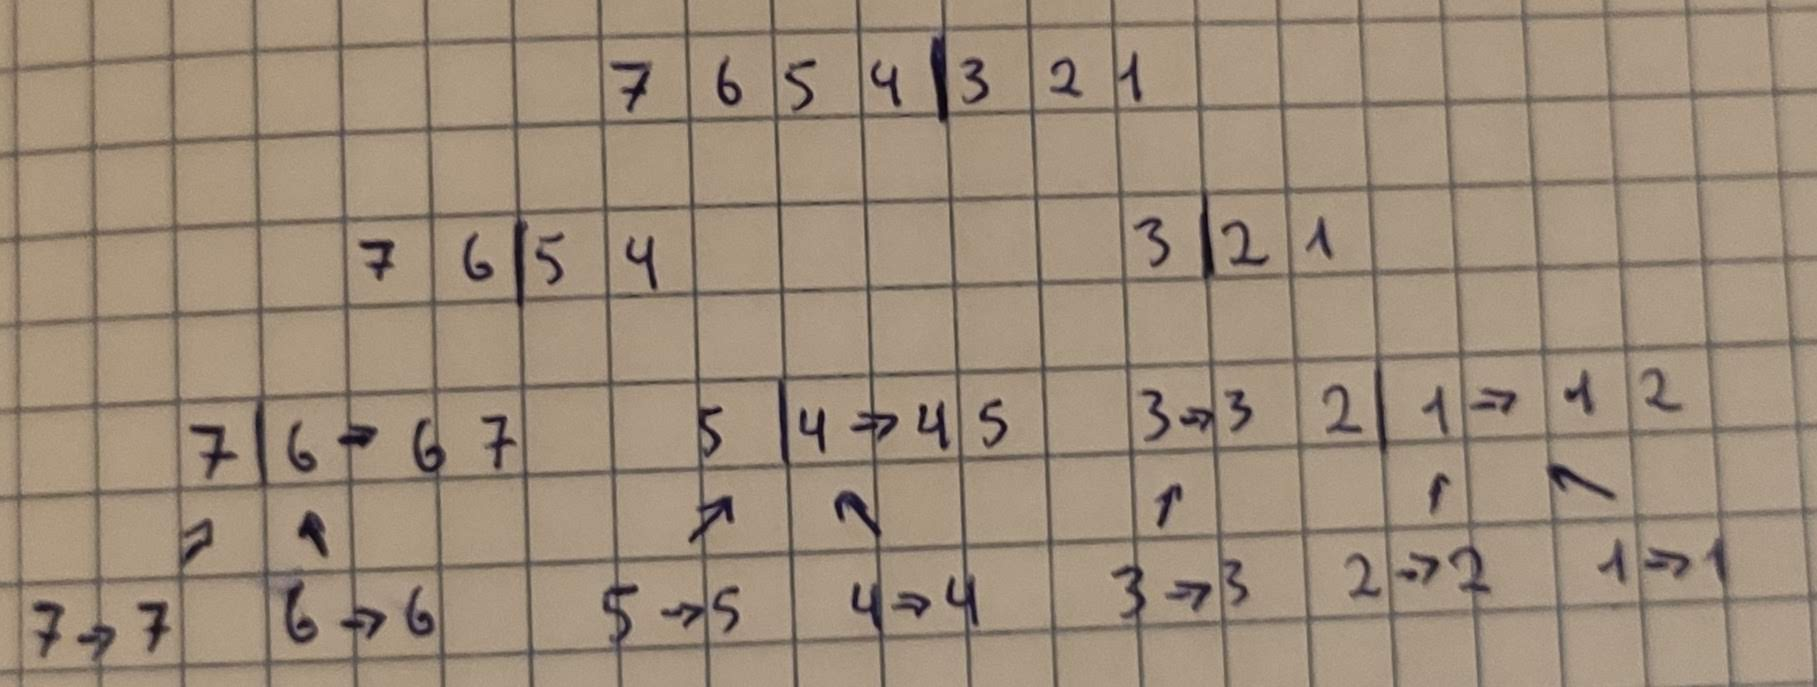 7 6 5 4 | 3 2 1
7 6 | 5 4 3 | 2 1
7 | 6 → 6 7 5 | 4 → 4 5 3 → 3 2 | 1 → 1 2
↗ ↑ ↗ ↖ ↑ ↑ ↖
7 → 7 6 → 6 5 → 5 4 → 4 3 → 3 2 → 2 1 → 1